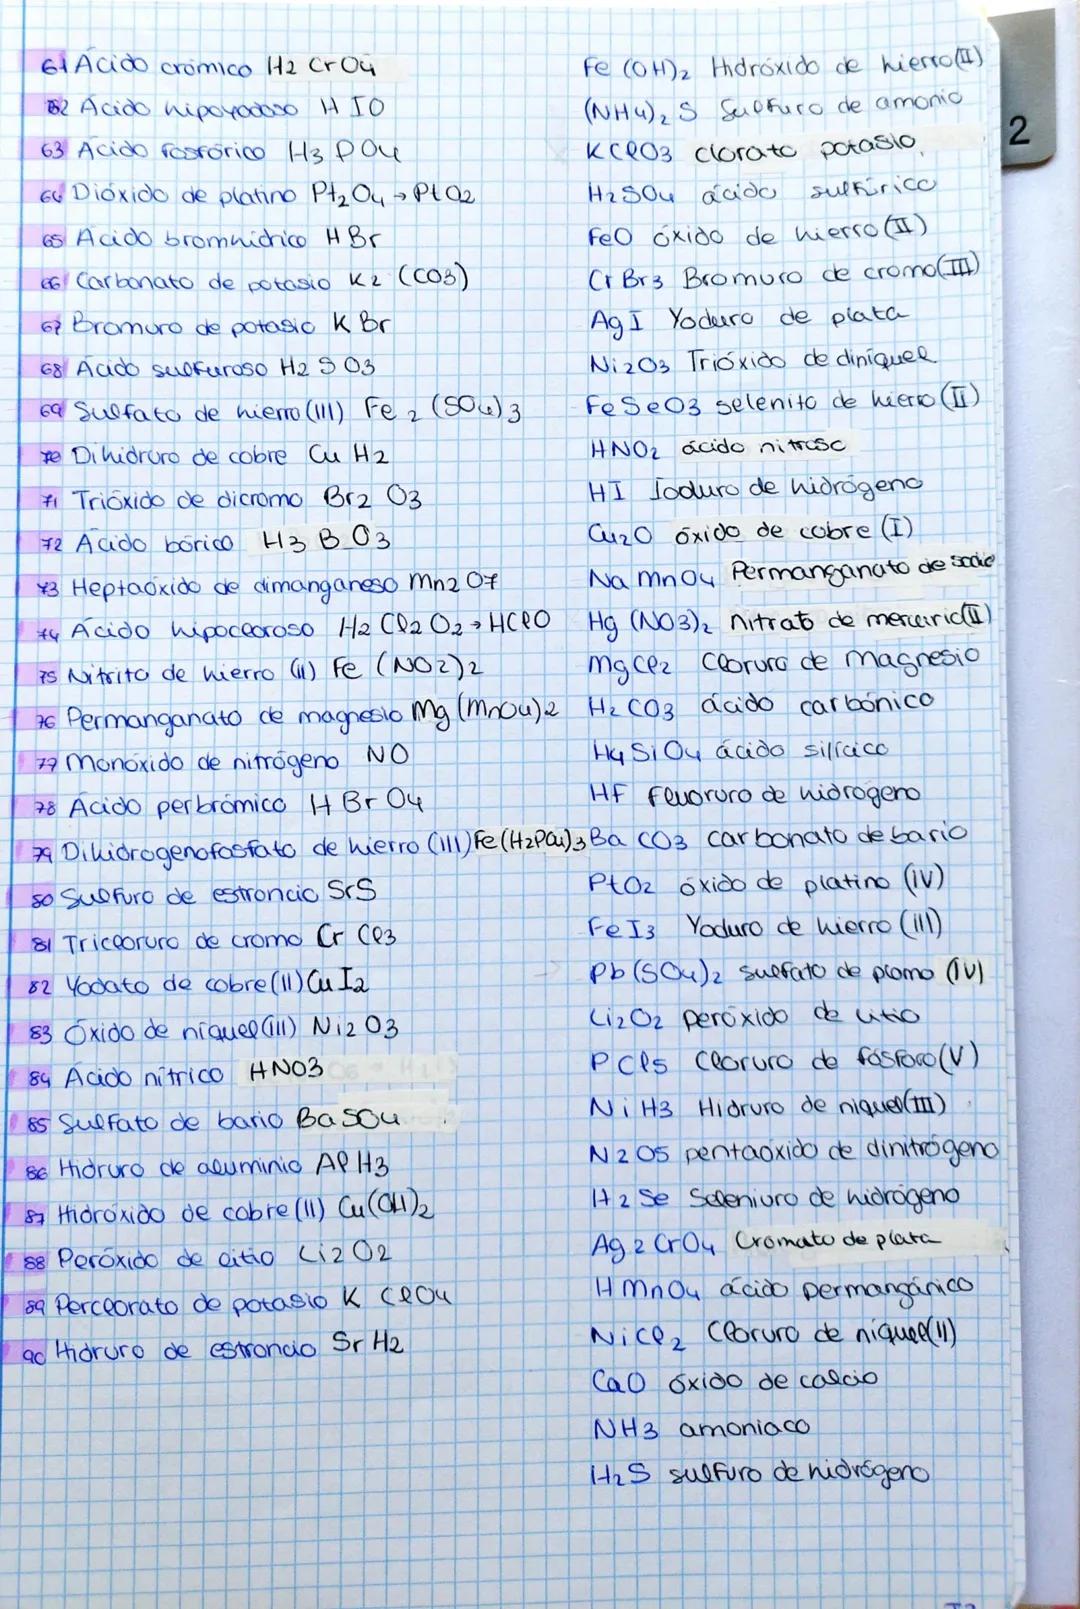 61 Ácido crómico H2 CrO4
62 Ácido hipoyodoso H IO
63 Ácido fosfórico H3 PO4
64 Dióxido de platino Pt2O4 → PtO2
65 Ácido bromhídrico H Br
66 Carbonato de potasio K2 (CO3)
67 Bromuro de potasio K Br
68 Ácido sulfuroso H2 S O3
69 Sulfato de hierro (III) Fe2 (SO4)3
70 Dihidruro de cobre Cu H2
71 Trióxido de dicromo Br2 O3
72 Ácido bórico H3 B O3
73 Heptaóxido de dimanganeso Mn2 O7
74 Ácido hipocloroso H2 Cl2 O2 → HClO
75 Nitrito de hierro (II) Fe (NO2)2
76 Permanganato de magnesio Mg (MnO4)2
77 Monóxido de nitrógeno NO
78 Ácido perbrómico H Br O4
79 Dihidrogenofosfato de hierro (III) Fe (H2PO4)3
80 Sulfuro de estroncio SrS
81 Tricloruro de cromo Cr Cl3
82 Yodato de cobre (II) Cu I2
83 Óxido de níquel (III) Ni2 O3
84 Ácido nítrico HNO3
85 Sulfato de bario BaSO4
86 Hidruro de aluminio Al H3
87 Hidróxido de cobre (II) Cu(OH)2
88 Peróxido de litio Li2 O2
89 Perclorato de potasio K ClO4
90 Hidruro de estroncio Sr H2
Fe (OH)2 Hidróxido de hierro (II)
(NH4)2 S Sulfuro de amonio
KClO3 clorato potasio
H2SO4 ácido sulfúrico
FeO óxido de hierro (II)
CrBr3 Bromuro de cromo (III)
AgI Yoduro de plata
Ni2O3 Trióxido de diníquel
FeSeO3 selenito de hierro (II)
HNO2 ácido nitroso
HI Ioduro de hidrógeno
Cu2O óxido de cobre (I)
Na MnO4 Permanganato de sodio
Hg (NO3)2 nitrato de mercurio (II)
MgCl2 Cloruro de magnesio
H2 CO3 ácido carbónico
H4 SiO4 ácido silícico
HF fluoruro de hidrógeno
Ba CO3 carbonato de bario
PtO2 óxido de platino (IV)
FeI3 Yoduro de hierro (III)
Pb (SO4)2 sulfato de plomo (IV)
Li2O2 peróxido de litio
PCl5 Cloruro de fósforo (V)
Ni H3 Hidruro de níquel (III)
N2O5 pentaóxido de dinitrógeno
H2 Se Seleniuro de hidrógeno
Ag2 CrO4 Cromato de plata
H MnO4 ácido permangánico
NiCl2 Cloruro de níquel (II)
CaO óxido de calcio
NH3 amoniaco
H2S sulfuro de hidrógeno
2